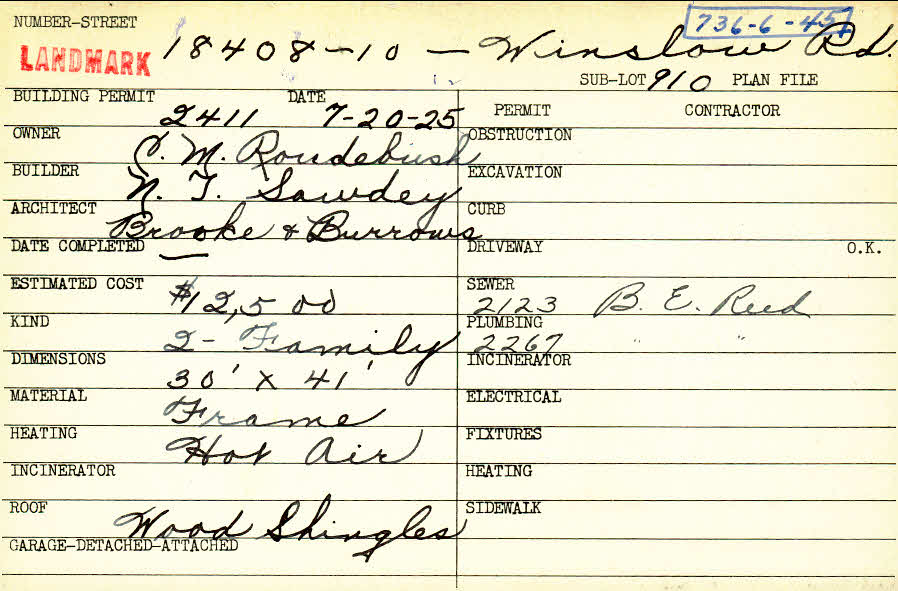 NUMBER-STREET
736-6-45
LANDMARK 18408-10 — Winslow Rd.
SUB-LOT 910 PLAN FILE
BUILDING PERMIT 2411 DATE 7-20-25
PERMIT CONTRACTOR
OWNER C. M. Roudebush
OBSTRUCTION
BUILDER N. T. Sawdey
EXCAVATION
ARCHITECT Brooke & Burrows
CURB
DATE COMPLETED —
DRIVEWAY O.K.
ESTIMATED COST $12,500
SEWER 2123 B. E. Reed
KIND 2-Family
PLUMBING 2267 " "
DIMENSIONS 30' X 41'
INCINERATOR
MATERIAL Frame
ELECTRICAL
HEATING Hot Air
FIXTURES
INCINERATOR
HEATING
ROOF Wood Shingles
SIDEWALK
GARAGE-DETACHED-ATTACHED